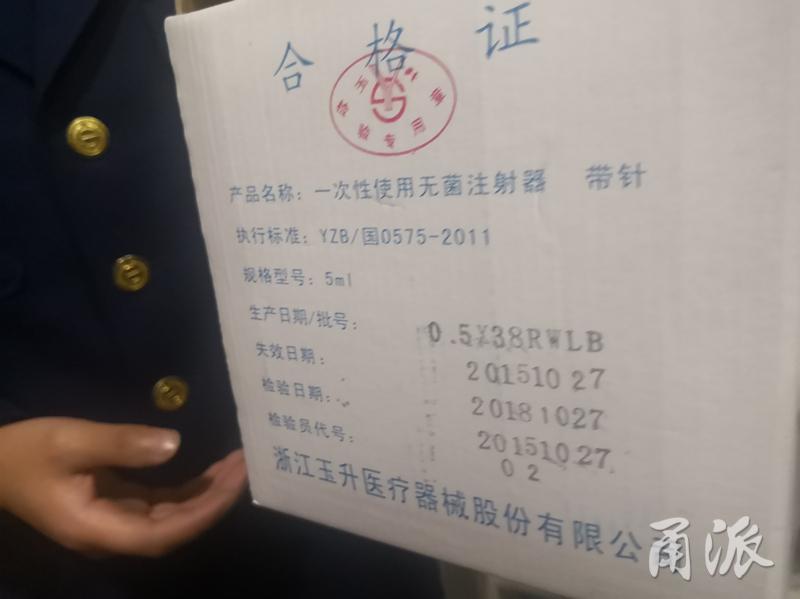 合格证
验专用章
产品名称：一次性使用无菌注射器 带针
执行标准：YZB/国0575-2011
规格型号：5ml
0.5X38RWLB
生产日期/批号：20151027
失效日期：20181027
检验日期：20151027
检验员代号：02
浙江玉升医疗器械股份有限公
甬派